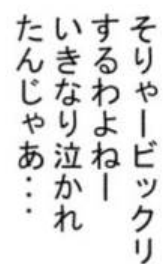 そりゃービックリ
するわよねー
いきなり泣かれ
たんじゃあ…